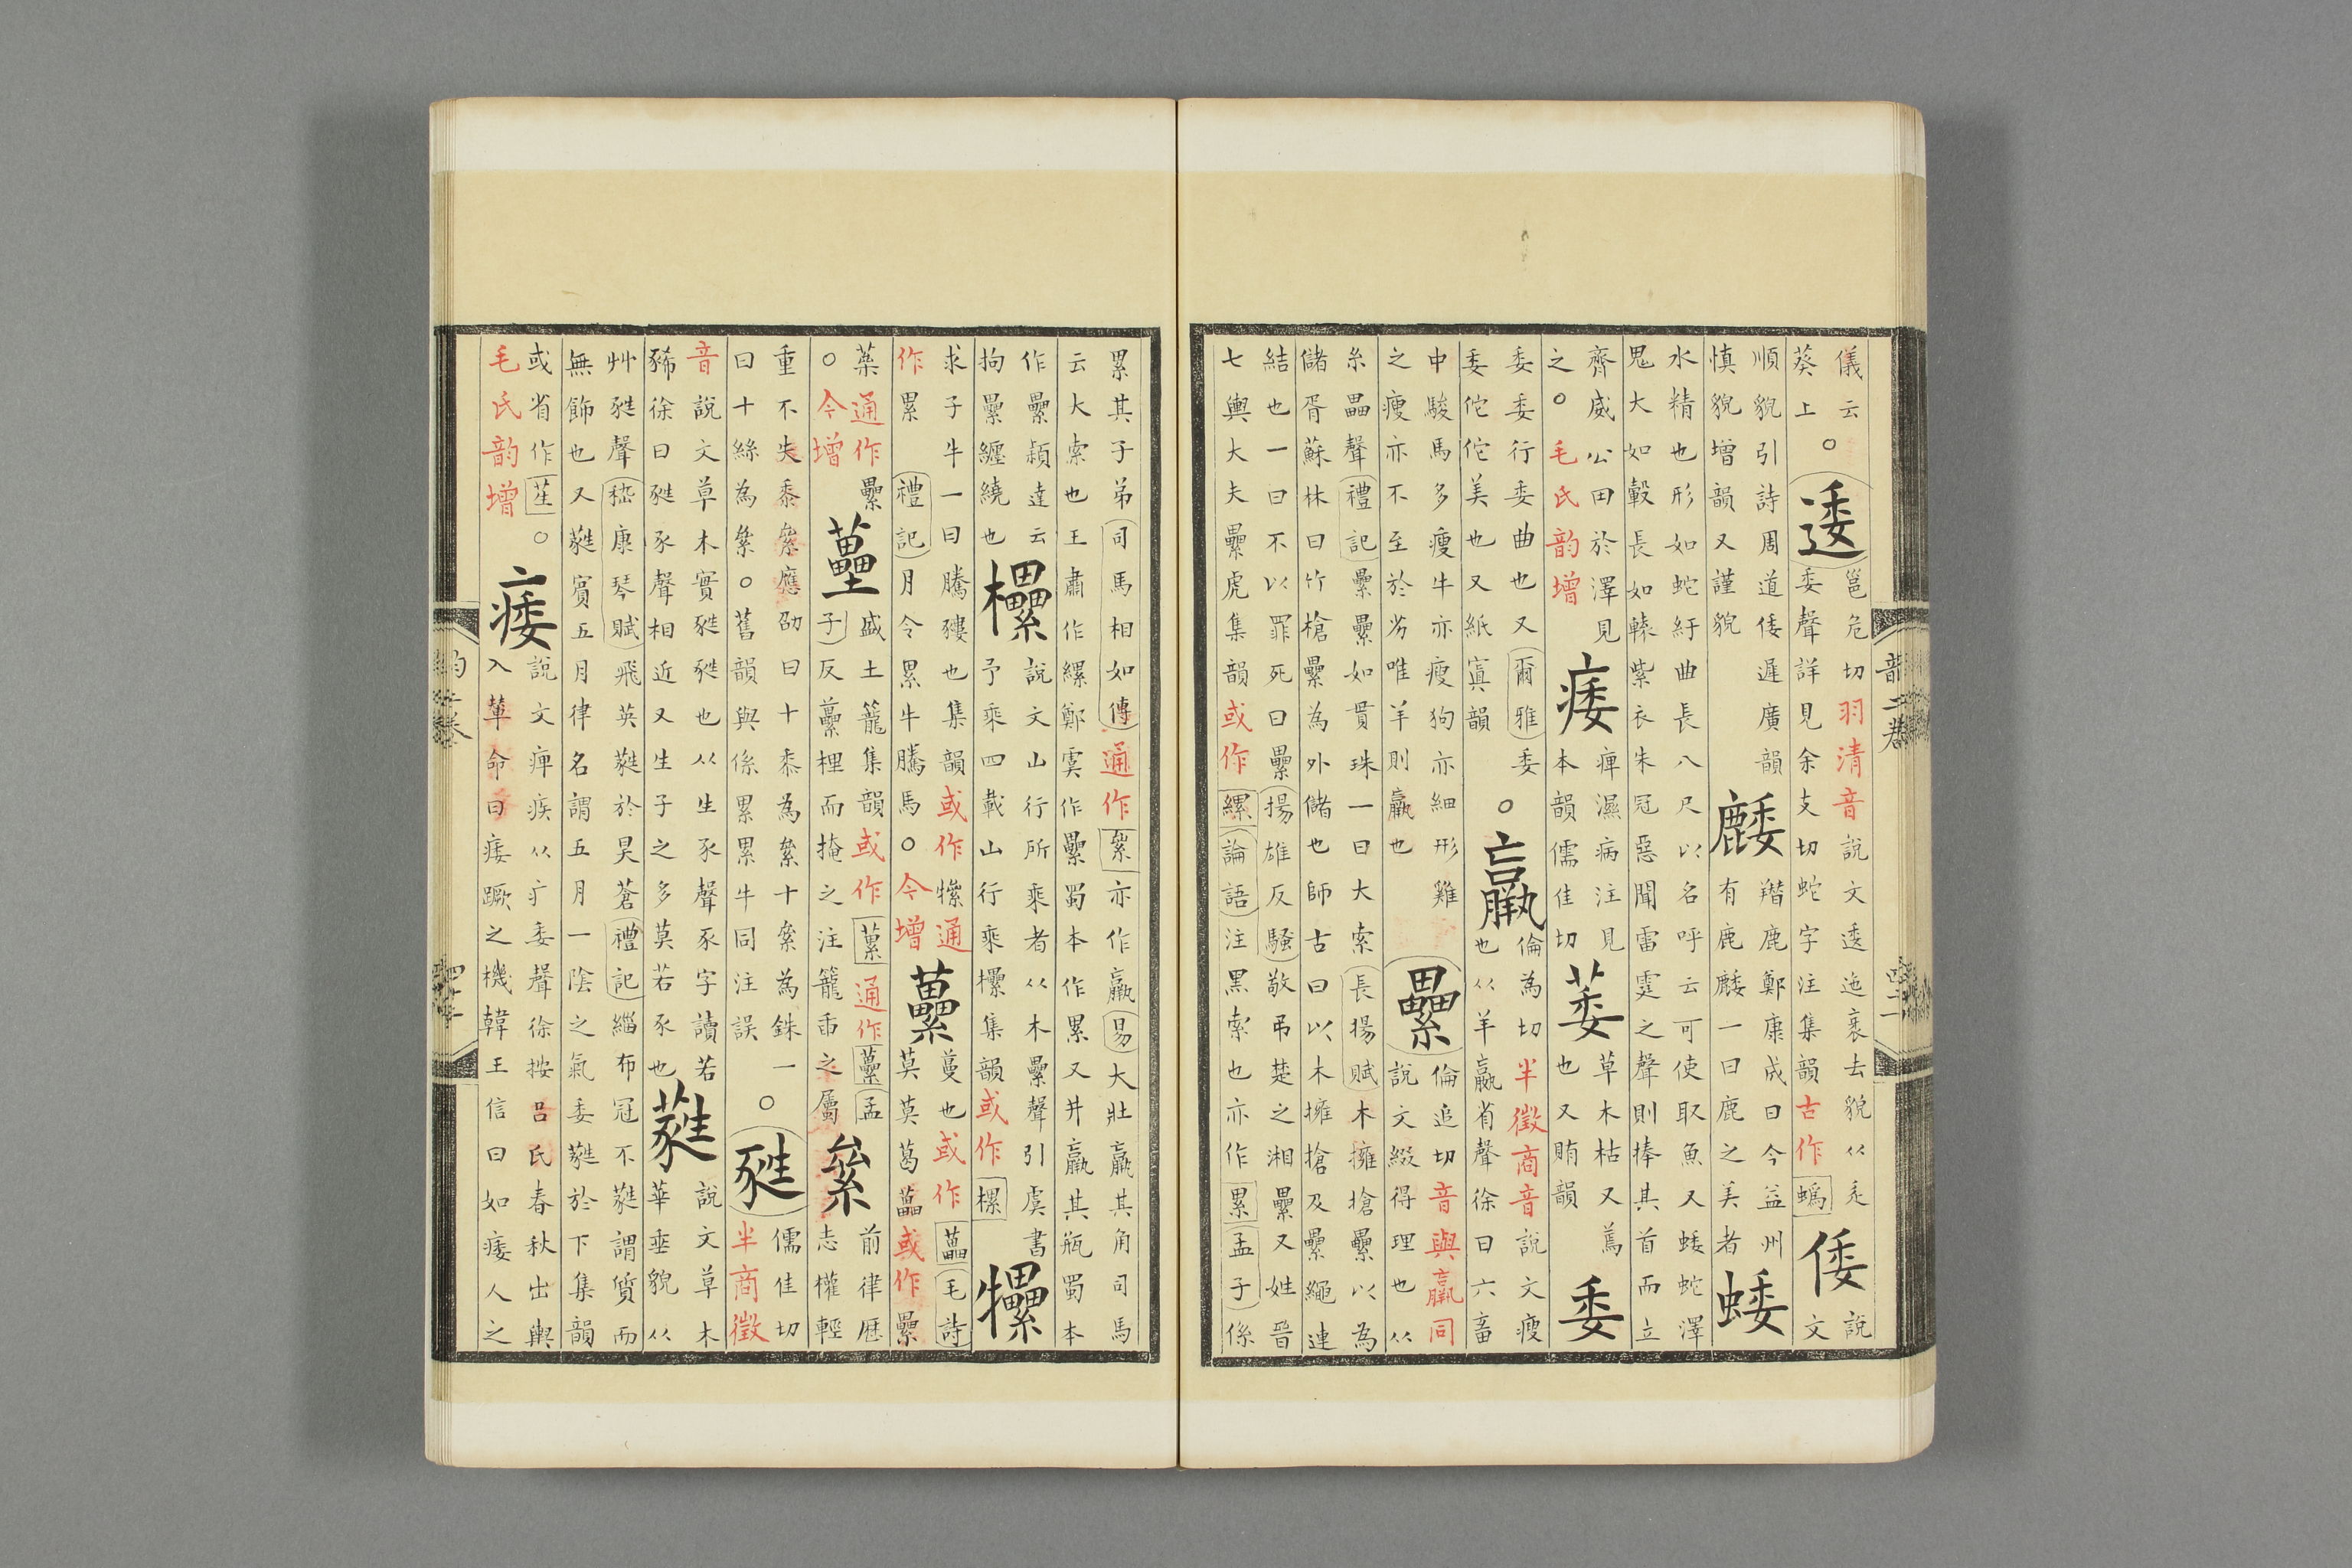 儀云○
葵上
逶
邕危切羽清音說文逶迤衺去貌从辵
委聲詳見余支切蛇字注集韻古作蟡
倭
說
文
順貌引詩周道倭遲廣韻
慎貌增韻又謹貌
䴧
䍽鹿鄭康成曰今益州
有鹿䴧一曰鹿之美者
蜲
水精也形如蛇紆曲長八尺以名呼云可使取魚又蜲蛇澤
鬼大如轂長如轅紫衣朱冠惡聞雷霆之聲則捧其首而立
齊威公田於澤見
之○毛氏韵增
痿
痺濕病注見
本韻儒隹切
萎
草木枯又蔫
也又賄韻
委
委委行委曲也又爾雅委
委佗佗美也又紙寘韻
○
羸
倫為切半徵商音說文瘦
也从羊𣎆省聲徐曰六畜
中駿馬多瘦牛亦瘦狗亦細形雞
之瘦亦不至於劣唯羊則羸也
纍
倫追切音與羸同
說文綴得理也从
糸畾聲禮記纍纍如貫珠一曰大索長揚賦木擁搶纍以為
儲胥蘇林曰竹槍纍為外儲也師古曰以木擁搶及纍繩連
結也一曰不以罪死曰纍揚雄反騷敬弔楚之湘纍又姓晉
七輿大夫纍虎集韻或作縲論語注黑索也亦作累孟子係
累其子弟司馬相如傳通作絫亦作羸易大壯羸其角司馬
云大索也王肅作縲鄭虞作纍蜀本作累又井羸其瓶蜀本
作纍穎達云
拘纍纏繞也
欙
說文山行所乘者从木纍聲引虞書
予乘四載山行乘欙集韻或作樏
㹎
求子牛一曰騰㹎也集韻或作㹎通
作累禮記月令累牛騰馬○今增
虆
蔓也或作藟毛詩
莫莫葛藟或作纍
蘽通作纍
○今增
蘲
盛土籠集韻或作蔂通作虆孟
子反虆梩而掩之注籠臿之屬
絫
前律歷
志權輕
重不失黍絫應劭曰十黍為絫十絫為銖一
曰十絲為絫○舊韻與係累累牛同注誤
○
甤
儒隹切
半商徵
音說文草木實甤甤也从生豕聲豕字讀若
豨徐曰甤豕聲相近又生子之多莫若豕也
蕤
說文草木
華垂貌从
艸甤聲嵇康琴賦飛英蕤於昊蒼禮記緇布冠不蕤謂質而
無飾也又蕤賓五月律名謂五月一陰之氣委蕤於下集韻
或省作苼○
毛氏韵增
痿
說文痺疾从疒委聲徐按呂氏春秋出輿
入輦命曰痿蹶之機韓王信曰如痿人之